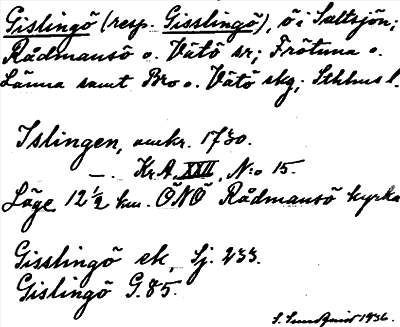 Gislingö (resp. Gisslingö), ö i Saltsjön;
Rådmansö o. Vätö sn; Frötuna o.
Länna samt Bro o. Vätö skg; Sthlms l.
Islingen, omkr. 1730.
— Kr.A. XXII, N:o 15.
Läge 12 ½ km. ÖNÖ Rådmansö kyrka
Gisslingö ek, Sj. 233.
Gislingö G.85.
1936.